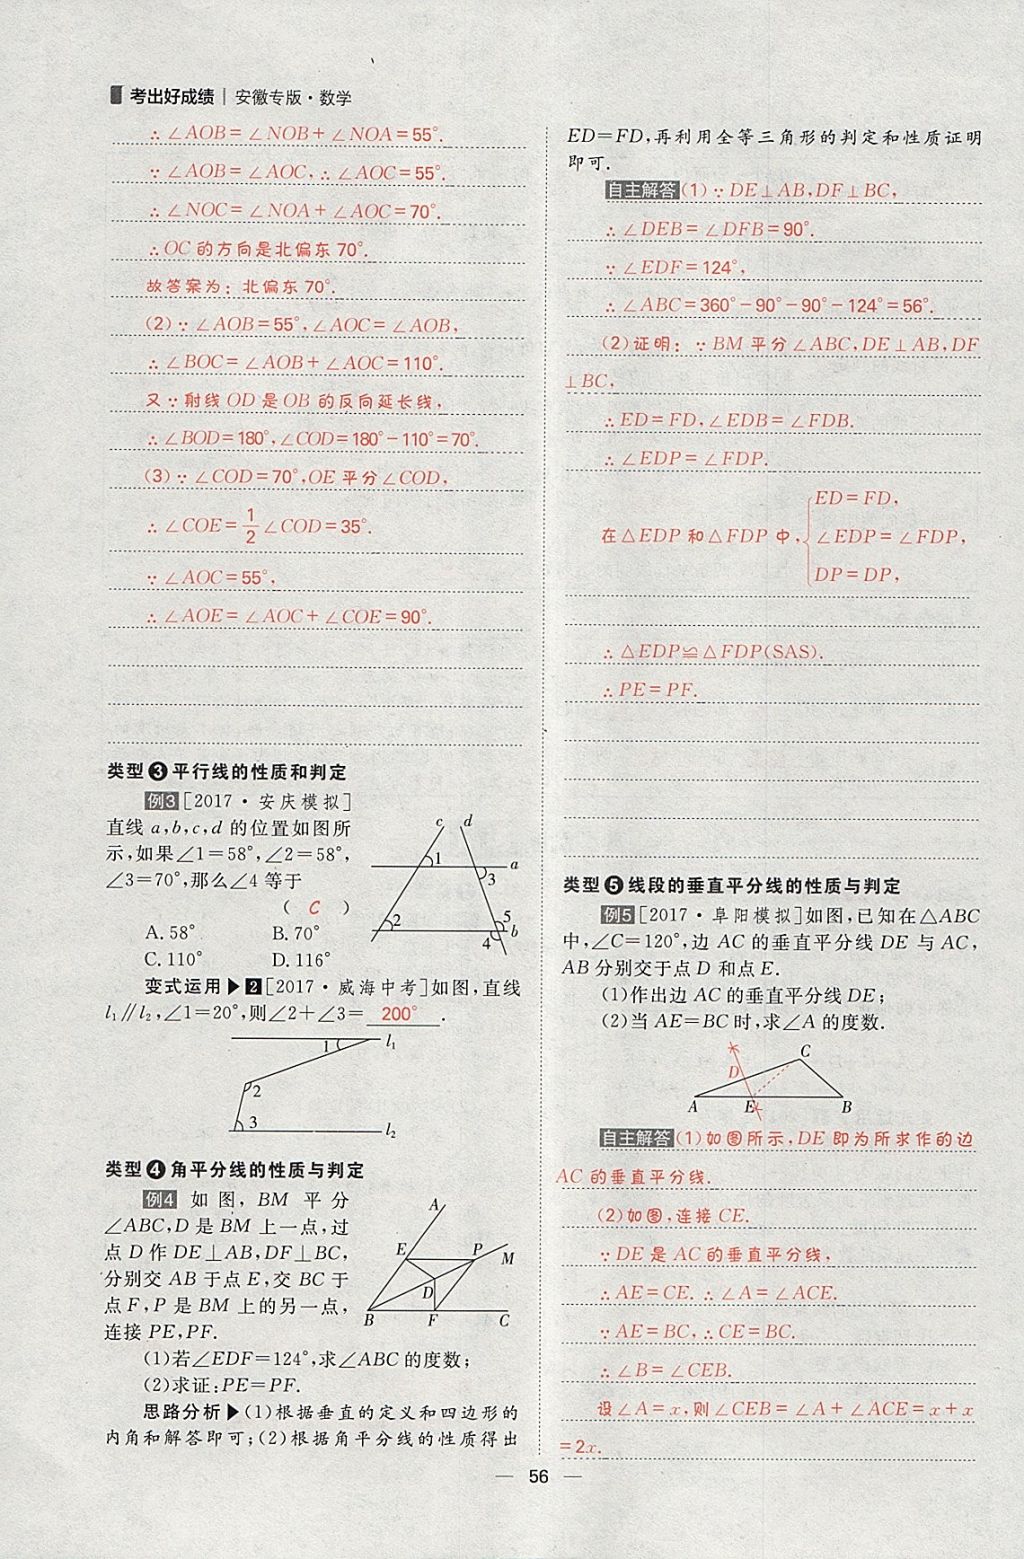 考出好成绩 | 安徽专版·数学
∴∠AOB=∠NOB+∠NOA=55°.
∵∠AOB=∠AOC,∴∠AOC=55°.
∴∠NOC=∠NOA+∠AOC=70°.
∴OC的方向是北偏东70°.
故答案为：北偏东70°.
(2)∵∠AOB=55°,∠AOC=∠AOB,
∴∠BOC=∠AOB+∠AOC=110°.
又∵射线OD是OB的反向延长线,
∴∠BOD=180°,∠COD=180°-110°=70°.
(3)∵∠COD=70°,OE平分∠COD,
∴∠COE=1/2∠COD=35°.
∵∠AOC=55°,
∴∠AOE=∠AOC+∠COE=90°.
类型❸平行线的性质和判定
例3[2017·安庆模拟]
直线a,b,c,d的位置如图所
示,如果∠1=58°,∠2=58°,
∠3=70°,那么∠4等于
( C )
A.58° B.70°
C.110° D.116°
c d
1 a
3
2 5
b
4
变式运用▶2[2017·威海中考]如图,直线
l₁∥l₂,∠1=20°,则∠2+∠3= 200° .
1 l₁
2
3 l₂
类型❹角平分线的性质与判定
例4 如图,BM 平分
∠ABC,D是BM上一点,过
点D作DE⊥AB,DF⊥BC,
分别交AB于点E,交BC于
点F,P是BM上的另一点,
连接PE,PF.
A
E P M
D
B F C
(1)若∠EDF=124°,求∠ABC的度数;
(2)求证:PE=PF.
思路分析▶(1)根据垂直的定义和四边形的
内角和解答即可;(2)根据角平分线的性质得出
ED=FD,再利用全等三角形的判定和性质证明
即可.
自主解答(1)∵DE⊥AB,DF⊥BC,
∴∠DEB=∠DFB=90°.
∵∠EDF=124°,
∴∠ABC=360°-90°-90°-124°=56°.
(2)证明：∵BM平分∠ABC,DE⊥AB,DF
⊥BC,
∴ED=FD,∠EDB=∠FDB.
∴∠EDP=∠FDP.
ED=FD,
在△EDP和△FDP中,{∠EDP=∠FDP,
DP=DP,
∴△EDP≌△FDP(SAS).
∴PE=PF.
类型❺线段的垂直平分线的性质与判定
例5[2017·阜阳模拟]如图,已知在△ABC
中,∠C=120°,边AC的垂直平分线DE与AC,
AB分别交于点D和点E.
(1)作出边AC的垂直平分线DE;
(2)当AE=BC时,求∠A的度数.
C
D
A E B
自主解答(1)如图所示,DE即为所求作的边
AC的垂直平分线.
(2)如图,连接CE.
∵DE是AC的垂直平分线,
∴AE=CE.∴∠A=∠ACE.
∵AE=BC,∴CE=BC.
∴∠B=∠CEB.
设∠A=x,则∠CEB=∠A+∠ACE=x+x
=2x.
— 56 —